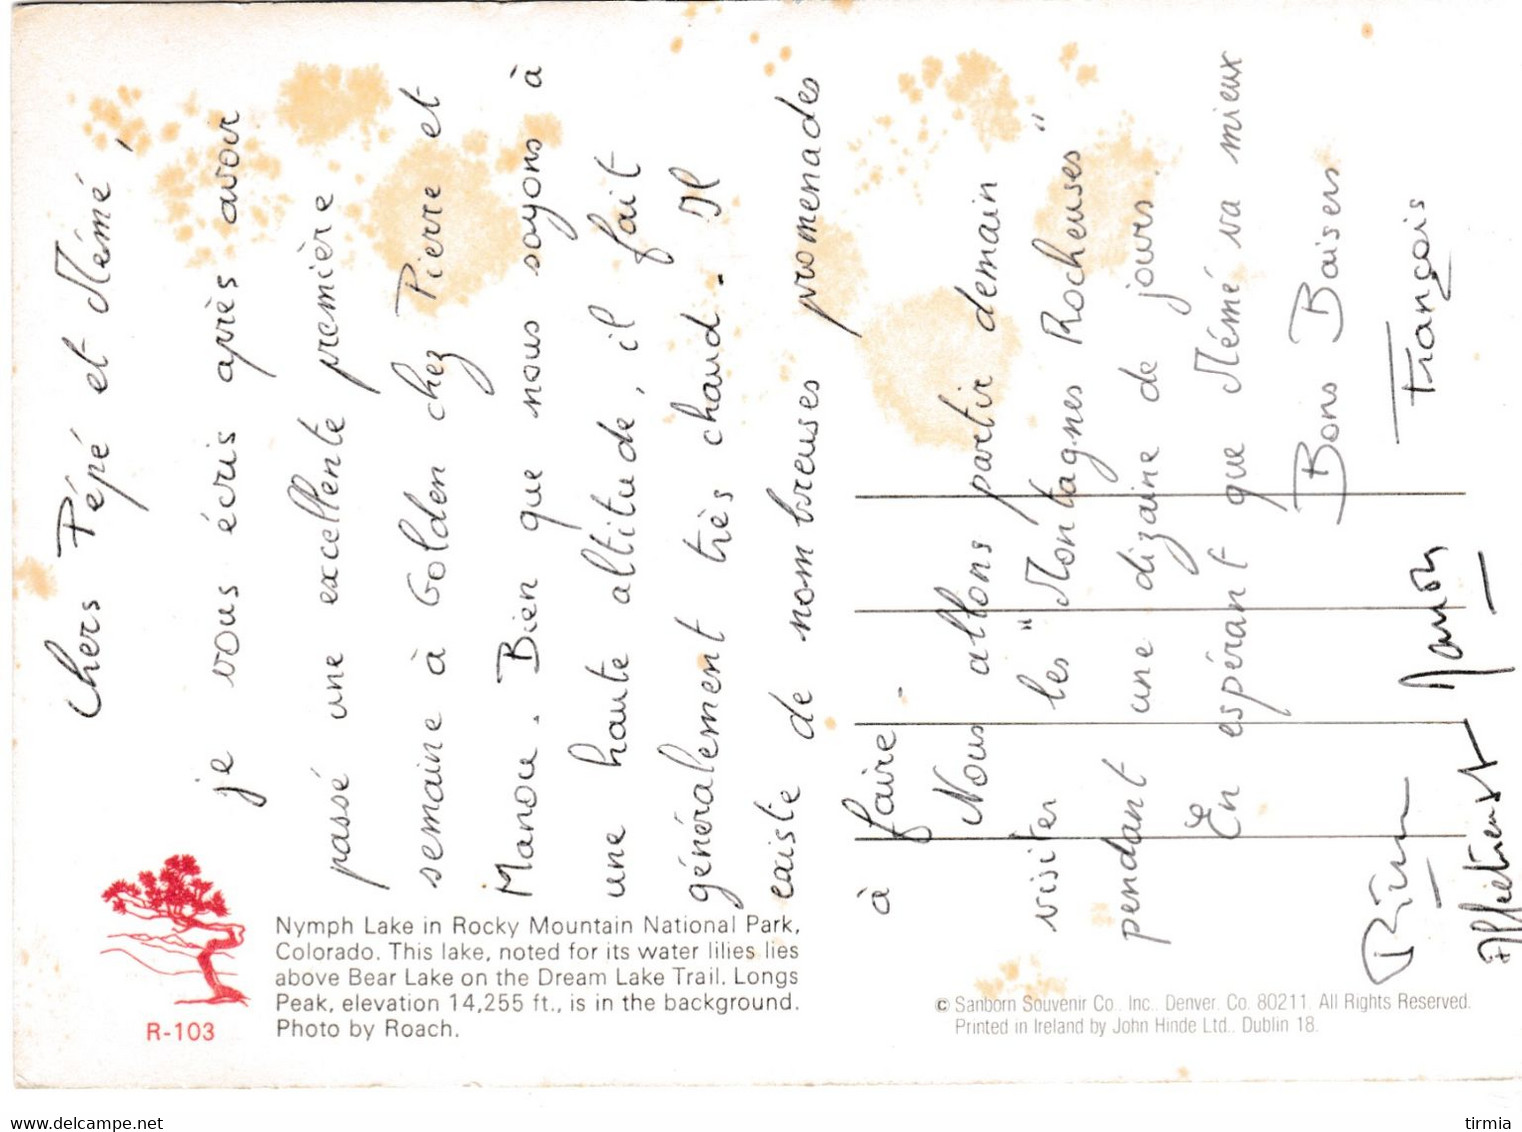 Chers Pépé et Mémé,
je vous écris après avoir
passé une excellente première
semaine à Golden chez Pierre et
Manou. Bien que nous soyons à
une haute altitude, il fait
généralement très chaud. Il
existe de nombreuses promenades
à faire.
Nous allons partir demain
visiter les "Montagnes Rocheuses"
pendant une dizaine de jours.
En espérant que Mémé va mieux
Bons Baisers
François
Manou
Affectueust
R-103
Nymph Lake in Rocky Mountain National Park,
Colorado. This lake, noted for its water lilies lies
above Bear Lake on the Dream Lake Trail. Longs
Peak, elevation 14,255 ft., is in the background.
Photo by Roach.
© Sanborn Souvenir Co., Inc., Denver, Co. 80211 All Rights Reserved.
Printed in Ireland by John Hinde Ltd., Dublin 18.
delcampe.net
tirmia